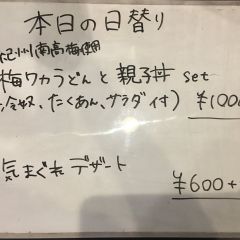 本日の日替り
紀州南高梅使用
梅ワカうどんと親子丼 set
冷奴、たくあん、サラダ付) ¥1000
気まぐれデザート
¥600+